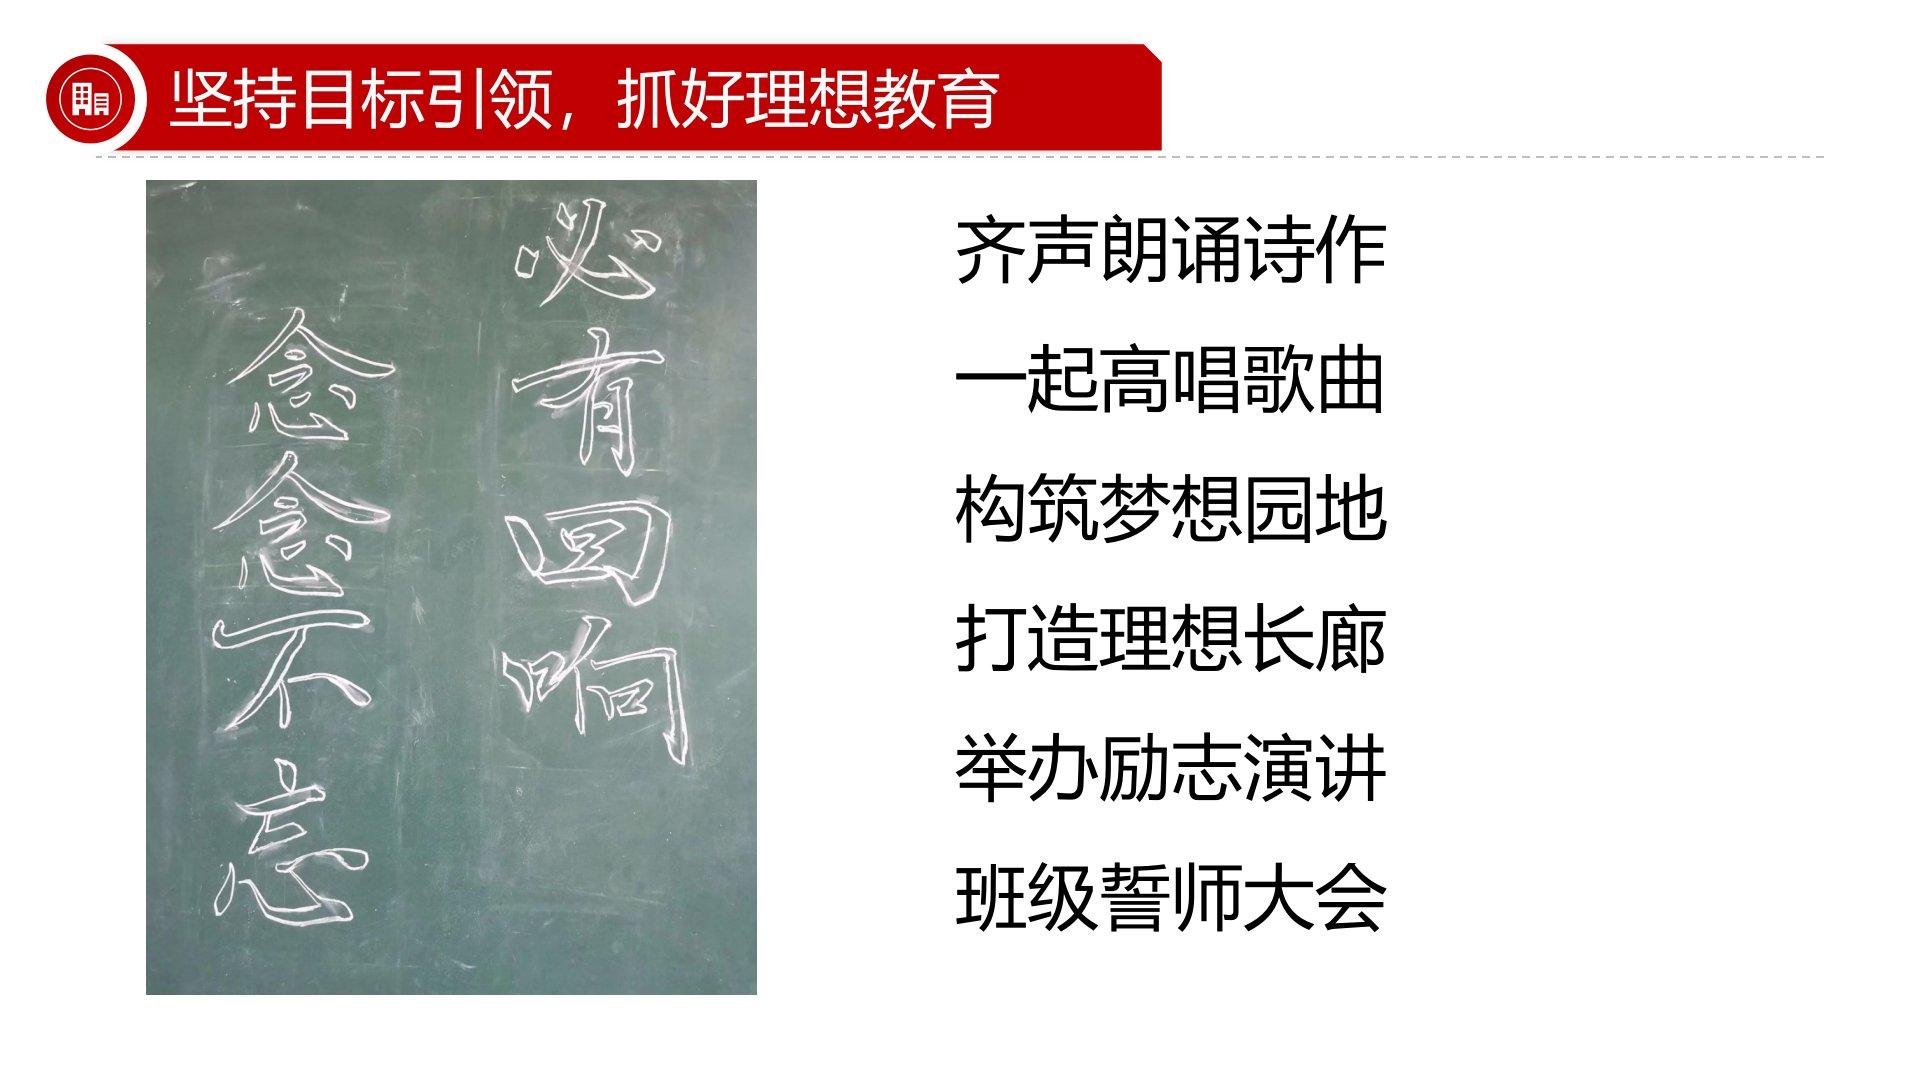 坚持目标引领，抓好理想教育
念念不忘
必有回响
齐声朗诵诗作
一起高唱歌曲
构筑梦想园地
打造理想长廊
举办励志演讲
班级誓师大会